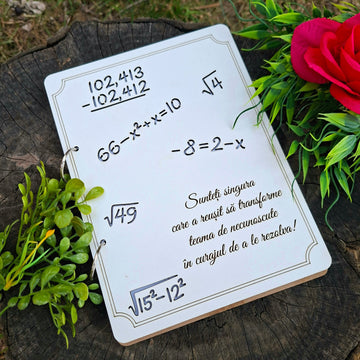 102,413
-102,412
√4
66-x²+x=10
-8=2-x
√49
Sunteți singura
care a reușit să transforme
teama de necunoscute
în curajul de a le rezolva!
√15²-12²